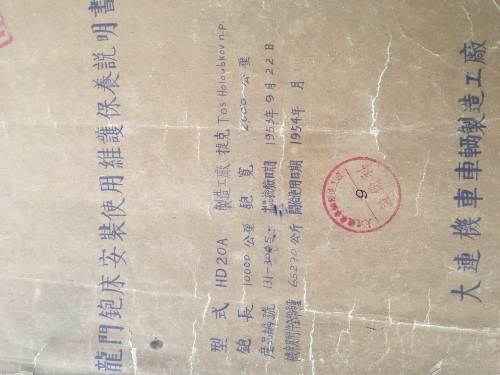 龍門鉋床安裝使用維護保養説明書
型式 HD20A 製造工廠 捷克 Tos Holoubkov n.p
鉋長 10000 公厘 鉋寬 2000 公厘
產品編號 131- 日期 1953年9月22日
65270 公斤 開始使用日期 1954年 月
9
大連機車車輛製造工廠